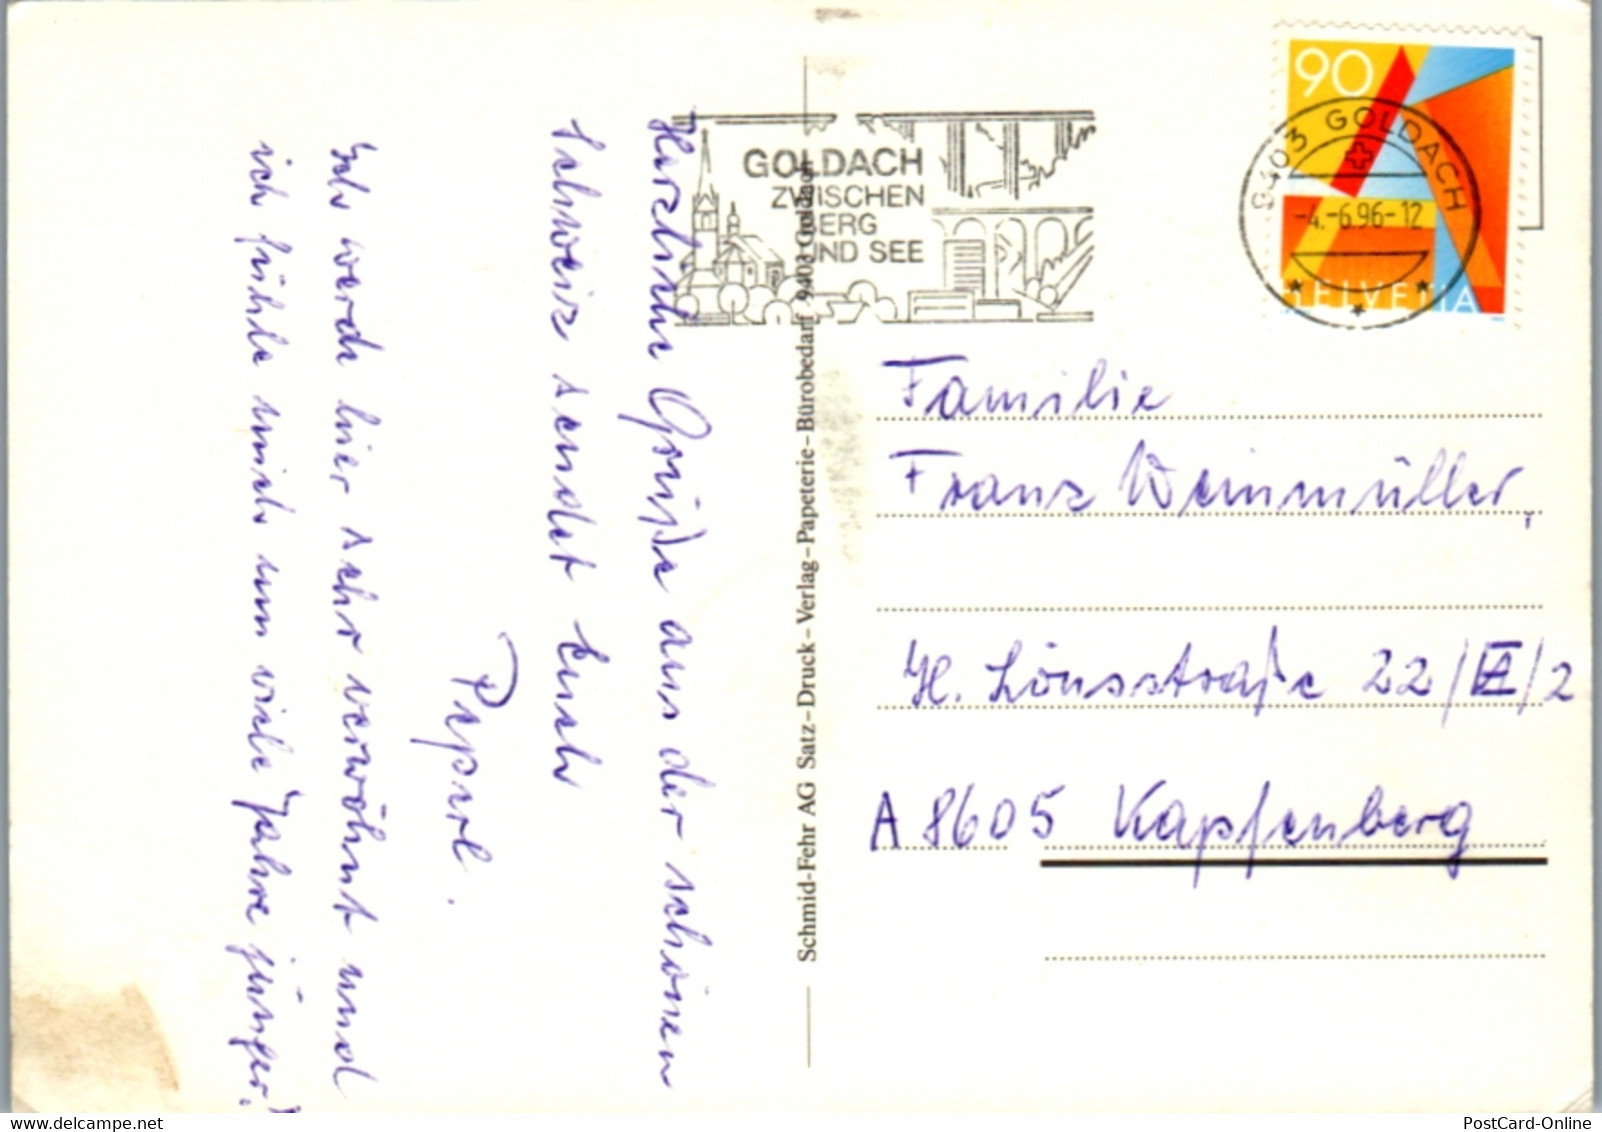 Herzliche Grüße aus der schönen
Schweiz sendet Euch
Peperl.
Ich werde hier sehr verwöhnt und
ich fühle mich um viele Jahre jünger!
Schmid-Fehr AG Satz–Druck–Verlag–Papeterie–Bürobedarf 9403 Goldach
GOLDACH
ZWISCHEN
BERG
UND SEE
90
HELVETIA
9403 GOLDACH
-4.-6.96-12
Familie
Franz Weinmüller,
H. Lönsstraße 22/VI/2
A 8605 Kapfenberg
PostCard-Online
www.delcampe.net